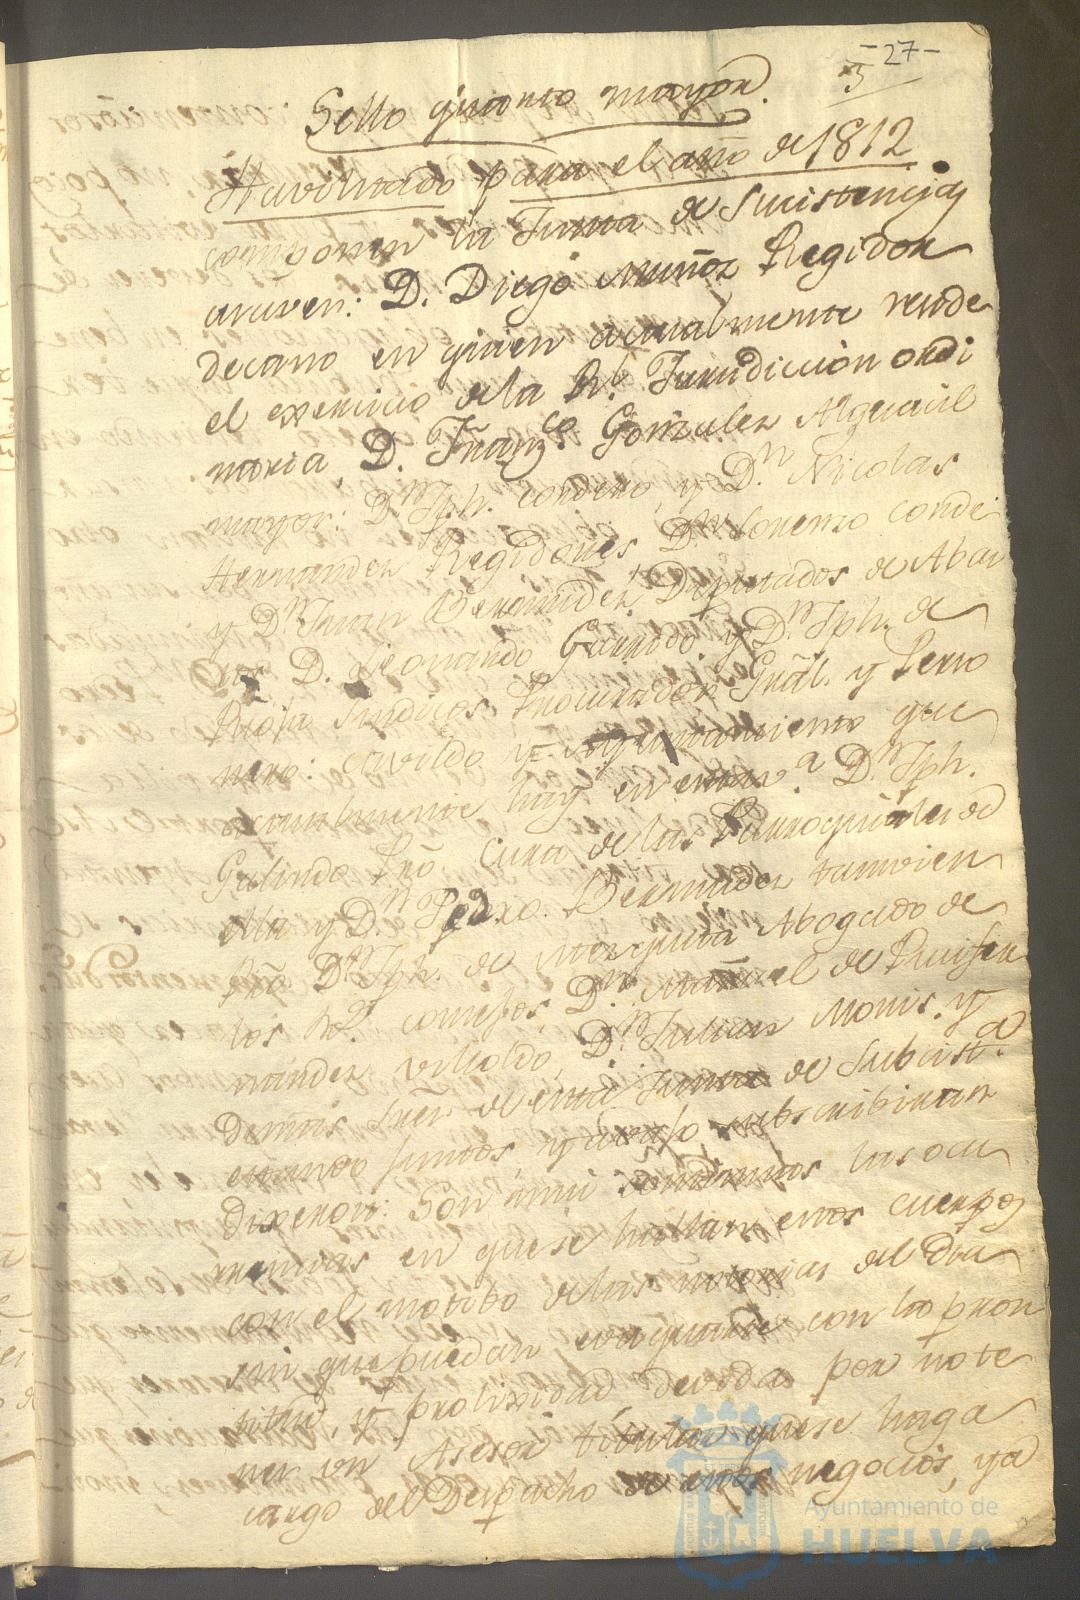 -27-
5
Sello quarto mayor.
Havilitado para el año de 1812
componen la Junta de Sucistencias
araver: D. Diego Muñoz Regidor
decano en quien actualmente recide
el exercicio dela Rl. Jurisdiccion ordi
naria, D. Franzco. Gonzalez Alguacil
mayor: Dn. Jph. cordero, y Dn. Nicolas
Hernandez Regidores, Dn. Lorenzo conde
y Dn. Juan Bermudez, Diputados de Abas
tos D. Leonardo Garrido, y Dn. Jph. de
Rioja Sindicos Procurador Gral. y Perso
nero: cavildo y Ayuntamiento que
actualmente hay en esta va. Dn. Jph.
Galindo Pro. Cura de las Parroquiales de
ella y Dn. Pedro Bermudez tamvien
Pro. Dn. Jph. de Mezquita Abogado de
los Rs. consejos, Dn. Manuel de Fer
nandez, Dn. Julian Monis, y
demas Sres. de esta Junta de Subcista.
estando juntos, y abaxo subscribiran
Dixeron: Son las ocu
rrencias en que se hallan estos cuerpos
con el motibo delas notorias del Dia
sin que puedan con la pron
titud y prolixidad devida por no te
ner un Asesor titular que se haga
cargo del Despacho de estos negocios, ya
Ayuntamiento de
HUELVA